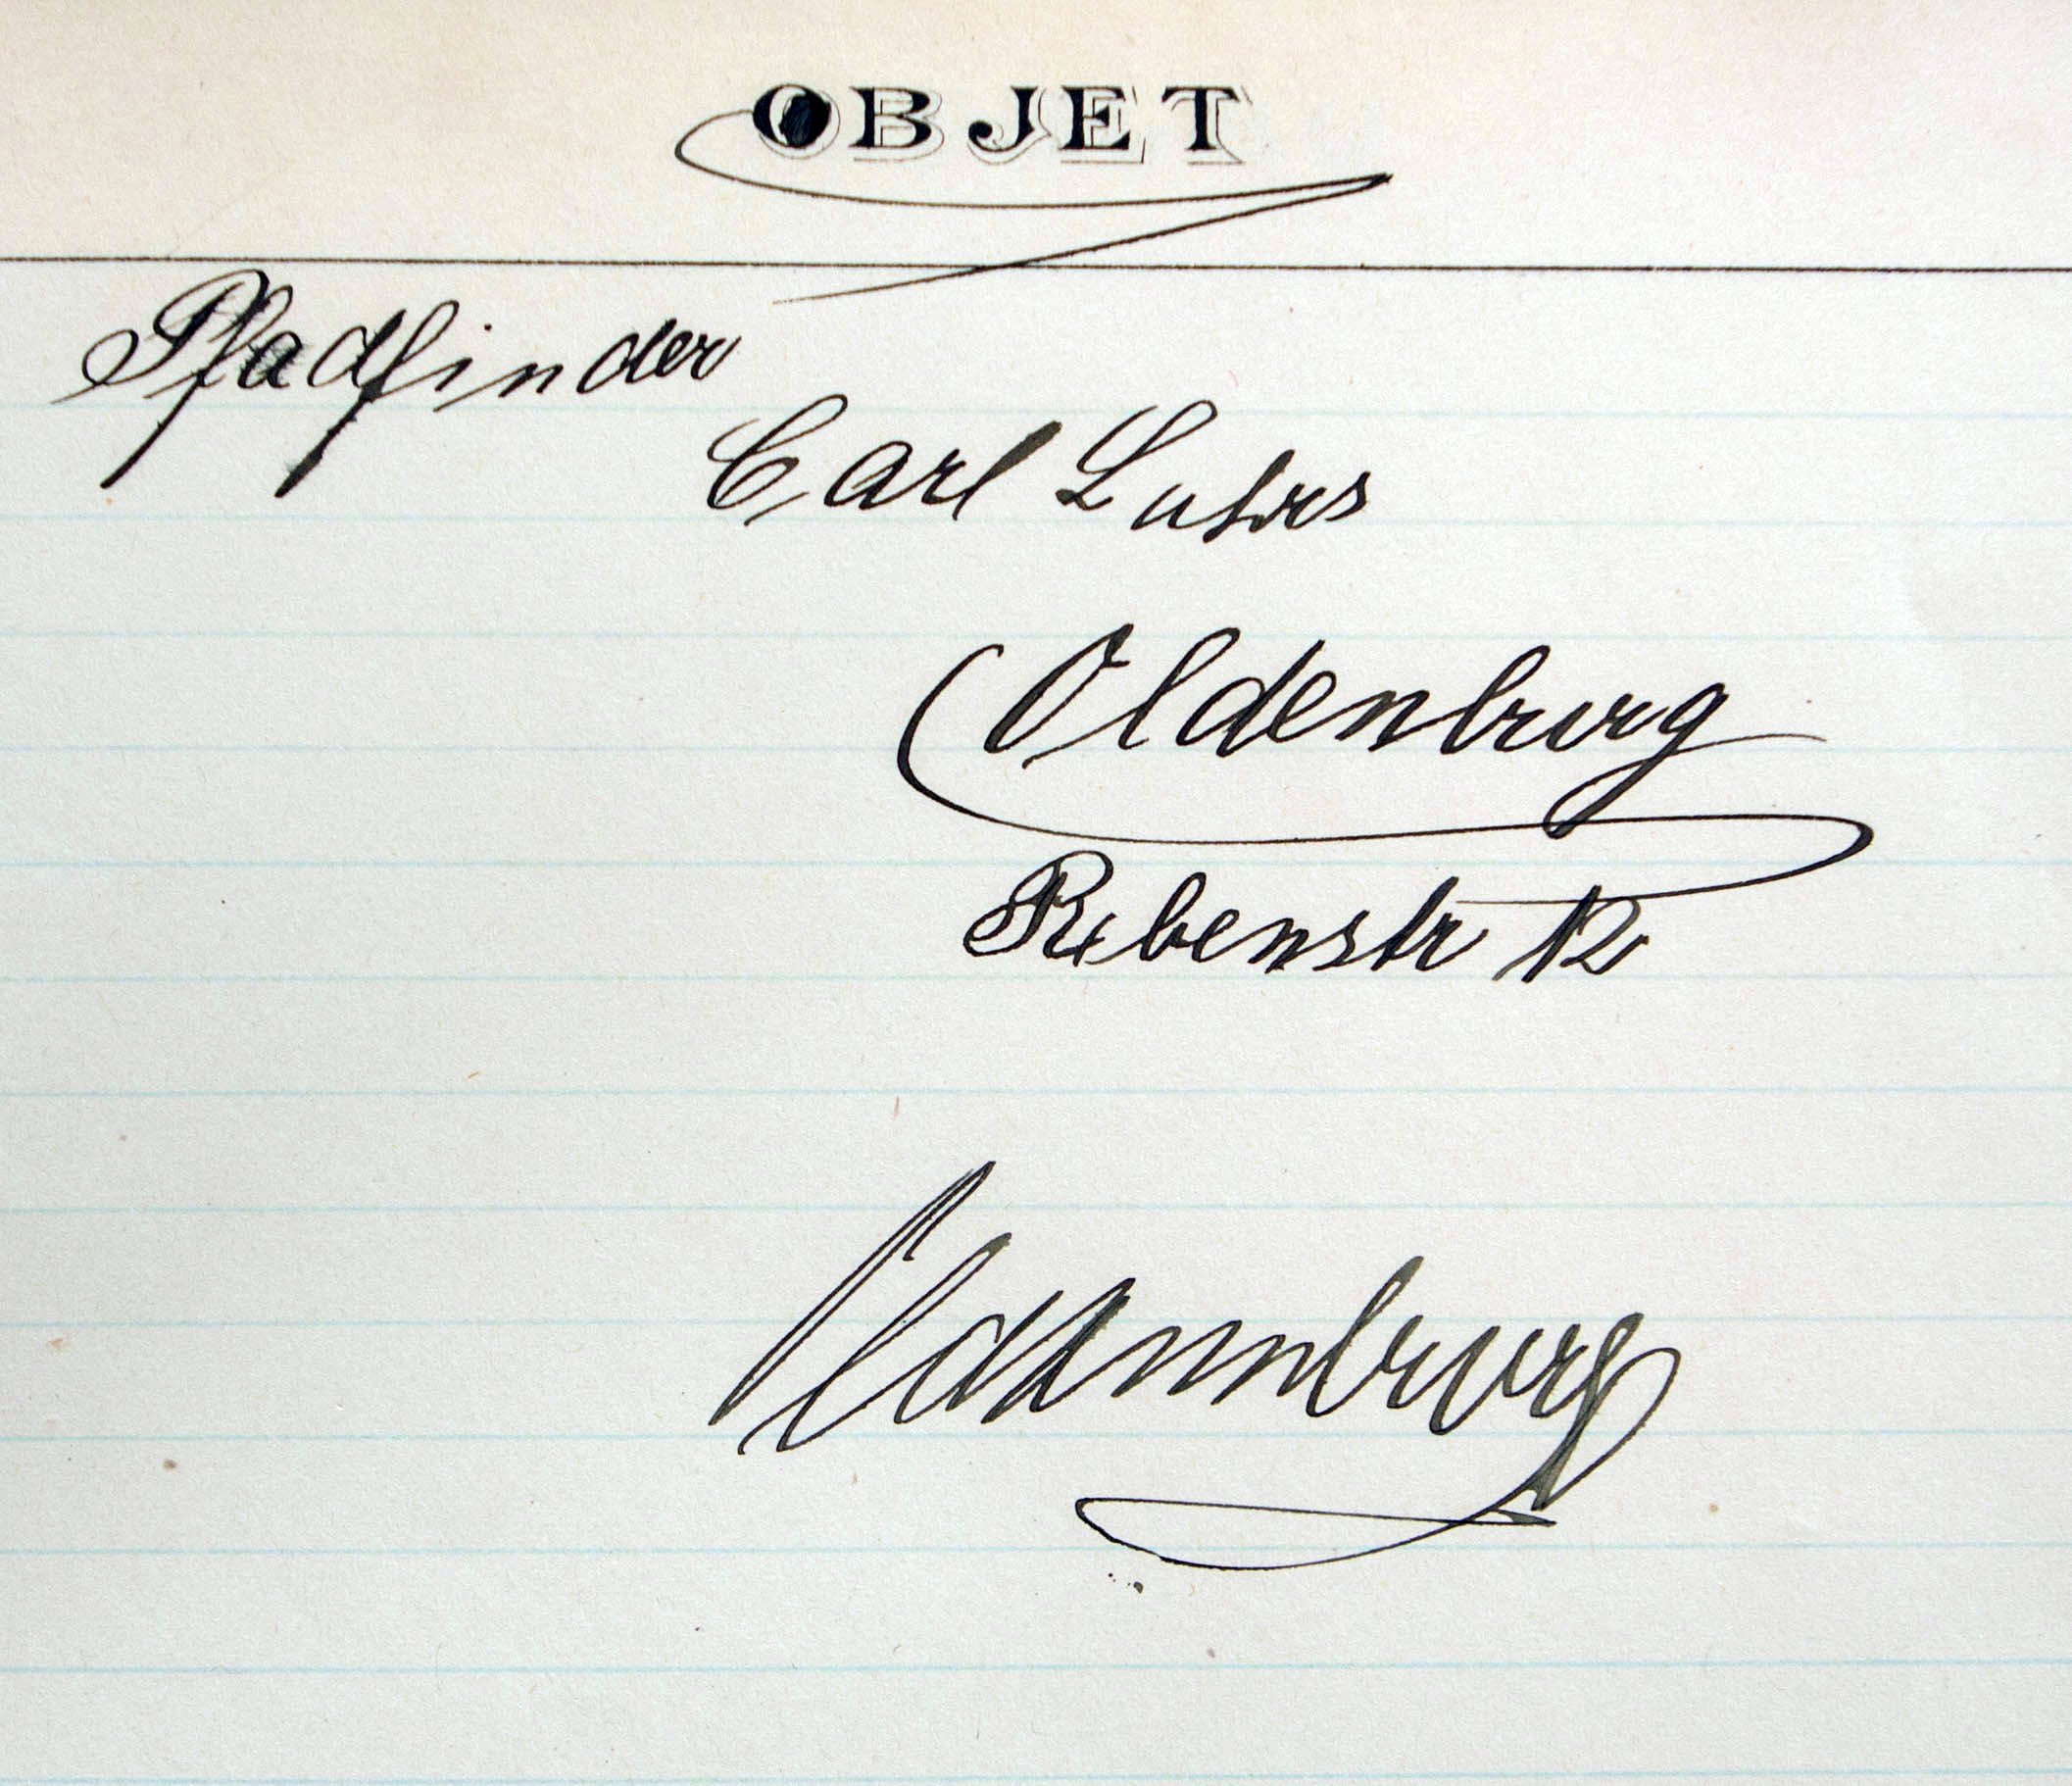 OBJET
Pfadfinder
Carl Luhrs
Oldenburg
Rebenstr 12
Oldenburg